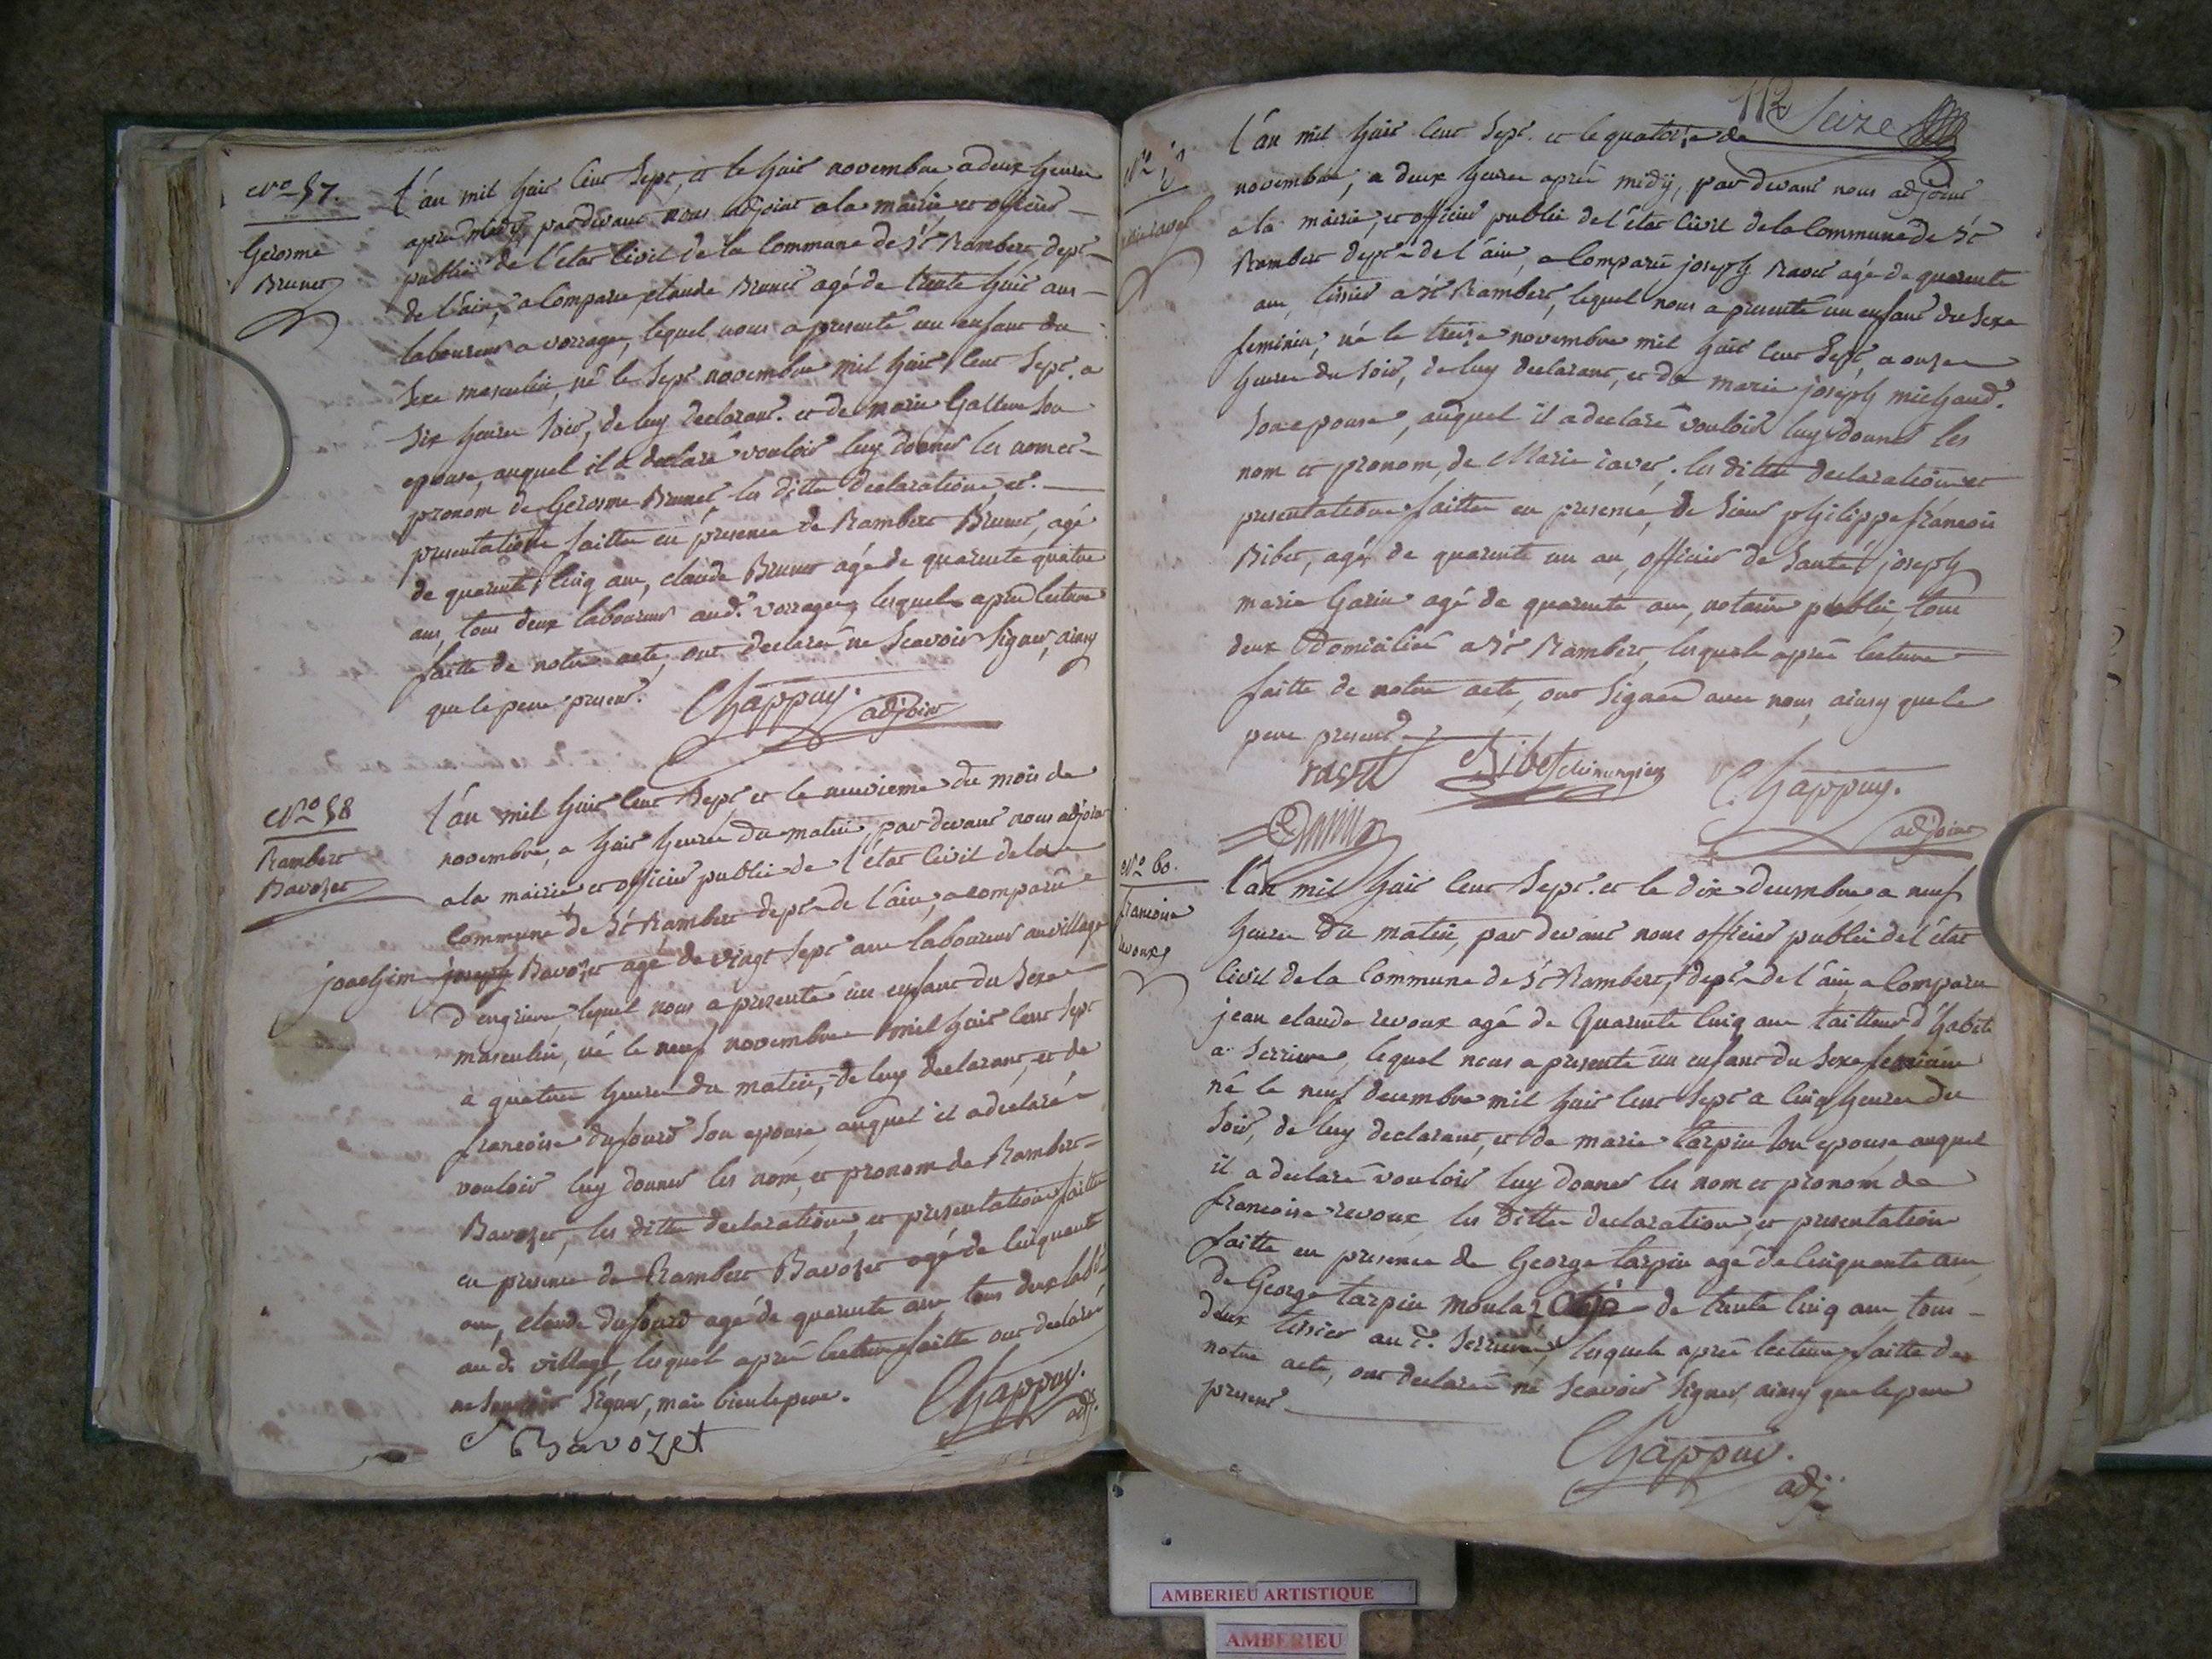 No 57.
Gérosme
Brunet
L'an mil huit cent sept, et le huit novembre a deux heures
apres midy, pardevant nous adjoint a la mairie et officier
public de l'état civil de la Commune de St Rambert dept
de l'ain, a Comparu, claude Brunet agé de trente huit ans
laboureur a vorrages, lequel nous a presenté un enfant du
sexe masculin, né le sept novembre mil huit cent sept, a
six heures soir, de luy declarant. et de marie son
epouse, auquel il a declaré vouloir luy donner les nom et
pronom de Gerosme Brunet, les dittes declarations et
presentations faittes en presence de Rambert Brunet, agé
de quarente cinq ans, claude Brunet agé de quarente quatre
ans, tous deux laboureurs aud. vorrages, lesquels apres lecture
faitte de notre acte, ont declarés ne Scavoir Signer, ainsy
que le pere present. Chappuy.
adjoint
No 58
Rambert
Bavozet
L'an mil huit cent sept et le neuvieme du mois de
novembre, a huit heures du matin, par devant nous adjoint
a la mairie et officier public de l'état Civil de la
Commune de St Rambert dept de l'ain, a comparu
joachim joseph Bavozet agé de vingt sept ans laboureur au village
d'engrieve, lequel nous a presenté un enfant du Sexe
masculin, né le neuf novembre mil huit cent sept
a quatre heures du matin, de luy declarant, et de
francoise dufourd son epouse, auquel il a declaré
vouloir luy donner les nom, et pronom de Rambert
Bavozet, les dittes declarations, et presentations faittes
en presence de Rambert Bavozet agé de cinquante
ans, claude dufourd agé de quarente ans tous deux labr
au d. village, lesquels apres lecture faitte ont declaré
ne Signer, mais bien le pere. Chappuy.
adj.
J Bavozet
112 Seize
No
L'an mil huit cent sept. et le quatorze de
novembre, a deux heures après midy, par devant nous adjoint
a la mairie, et officier public de l'état civil de la Commune de St
Rambert dept de l'ain, a Comparu joseph Ravet agé de quarente
ans, tissier a St Rambert, lequel nous a presenté un enfant du Sexe
feminin, né le treize novembre mil huit cent sept, a onze
heures du soir, de luy declarant, et de marie joseph michaud.
son epouse, auquel il a declaré vouloir luy donner les
nom et pronom, de Marie ravet. les dittes declarations et
presentations faittes en presence, de Sieur philippe françois
Ribet, agé de quarente un an, officier de Santé, joseph
marie Garin agé de quarente ans, notaire public, tous
deux Domiciliés a St Rambert, lesquels après lecture
faitte de notre acte, ont Signés avec nous, ainsy que le
pere present
ravet Ribet chirurgien Chappuy.
adjoint
No 60.
francoise
revoux
L'an mil huit cent sept. et le dix decembre a neuf
heures du matin, par devant nous officier public de l'état
Civil de la Commune de St Rambert, dept de l'ain a Comparu
jean claude revoux agé de Quarente cinq ans tailleur d'habits
a Serrieres, lequel nous a presenté un enfant du Sexe feminin
né le neuf decembre mil huit cent sept a cinq heures du
Soir, de luy declarant, et de marie tarpin son epouse, auquel
il a declaré vouloir luy donner les nom et pronom de
francoise revoux, les dittes declarations, et presentations
faitte en presence de George tarpin agé de cinquante ans
de George tarpin agé de trente cinq ans, tous
deux tissier au d. Serrieres, lesquels apres lecture faitte de
notre acte, ont declarés ne Scavoir Signer, ainsy que le pere
present
Chappuy.
adj
AMBERIEU ARTISTIQUE
AMBERIEU